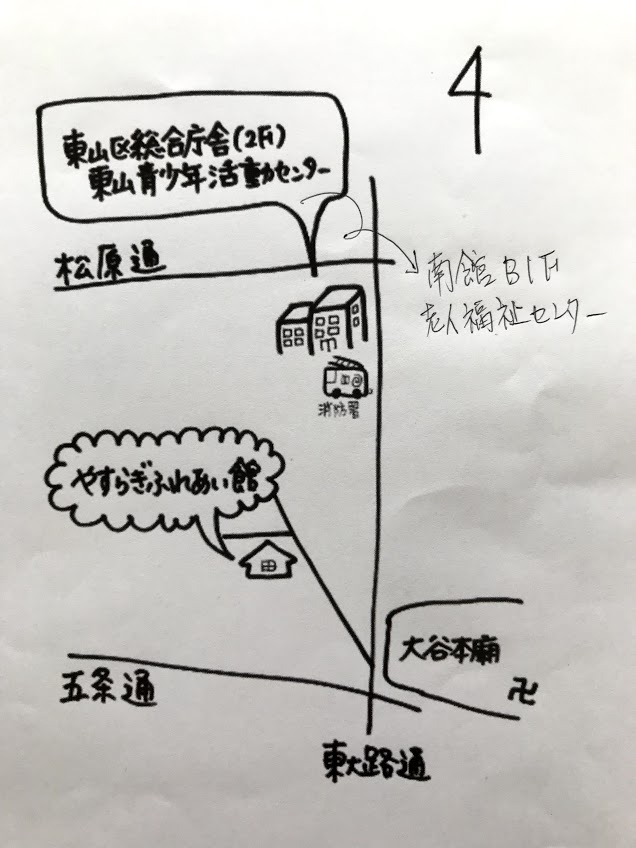 東山区総合庁舎(2F)
東山青少年活動センター
松原通
南館B1F
老人福祉センター
消防署
やすらぎふれあい館
大谷本廟
卍
五条通
東大路通